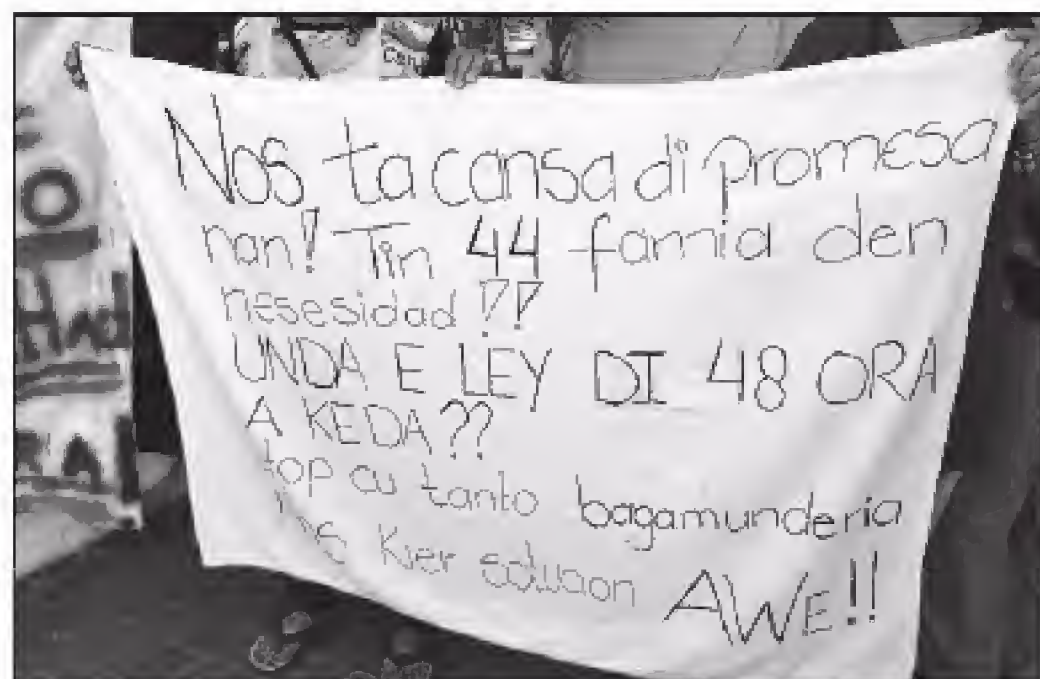 Nos ta cansa di promesa
nan! Tin 44 famia den
nesesidad!!
UNDA E LEY DI 48 ORA
A KEDA??
top cu tanto bagamunderia
kier
AWE!!